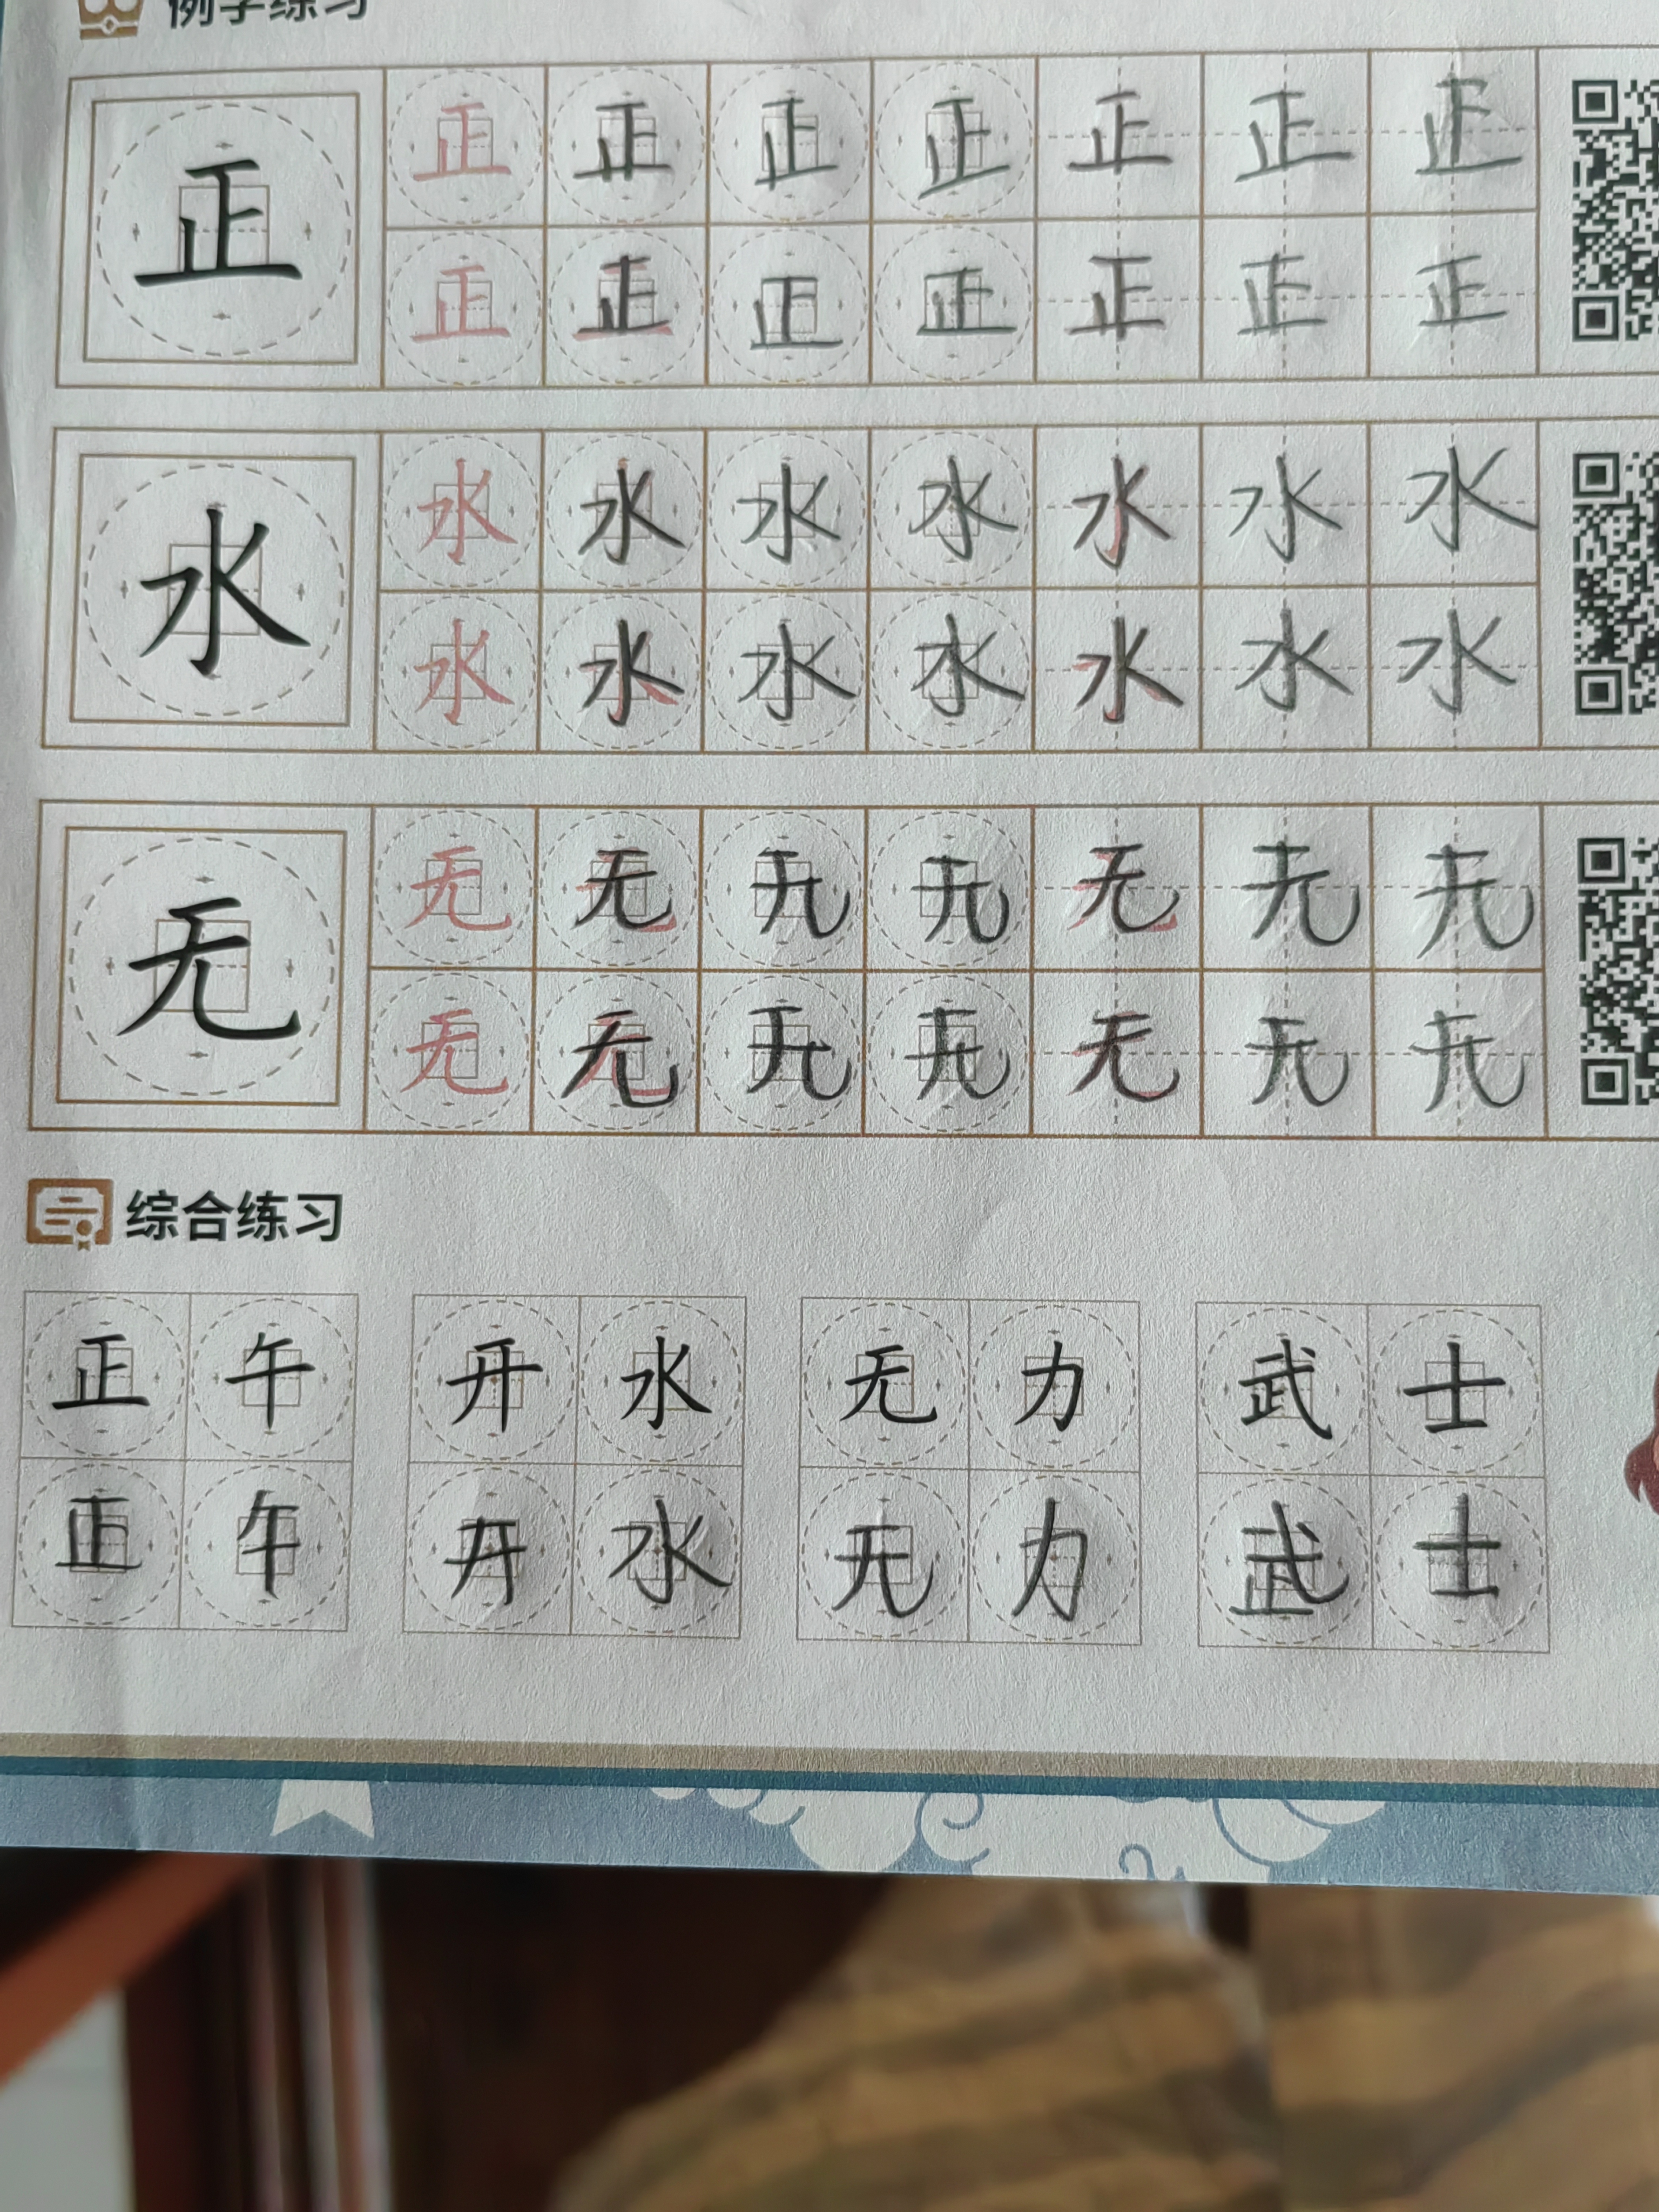 例字练习
正 正 正 正 正 正 正 正
正 正 正 正 正 正 正
水 水 水 水 水 水 水 水
水 水 水 水 水 水 水
无 无 无 无 无 无 无 无
无 无 无 无 无 无 无
综合练习
正午 开水 无力 武士
正午 开水 无力 武士